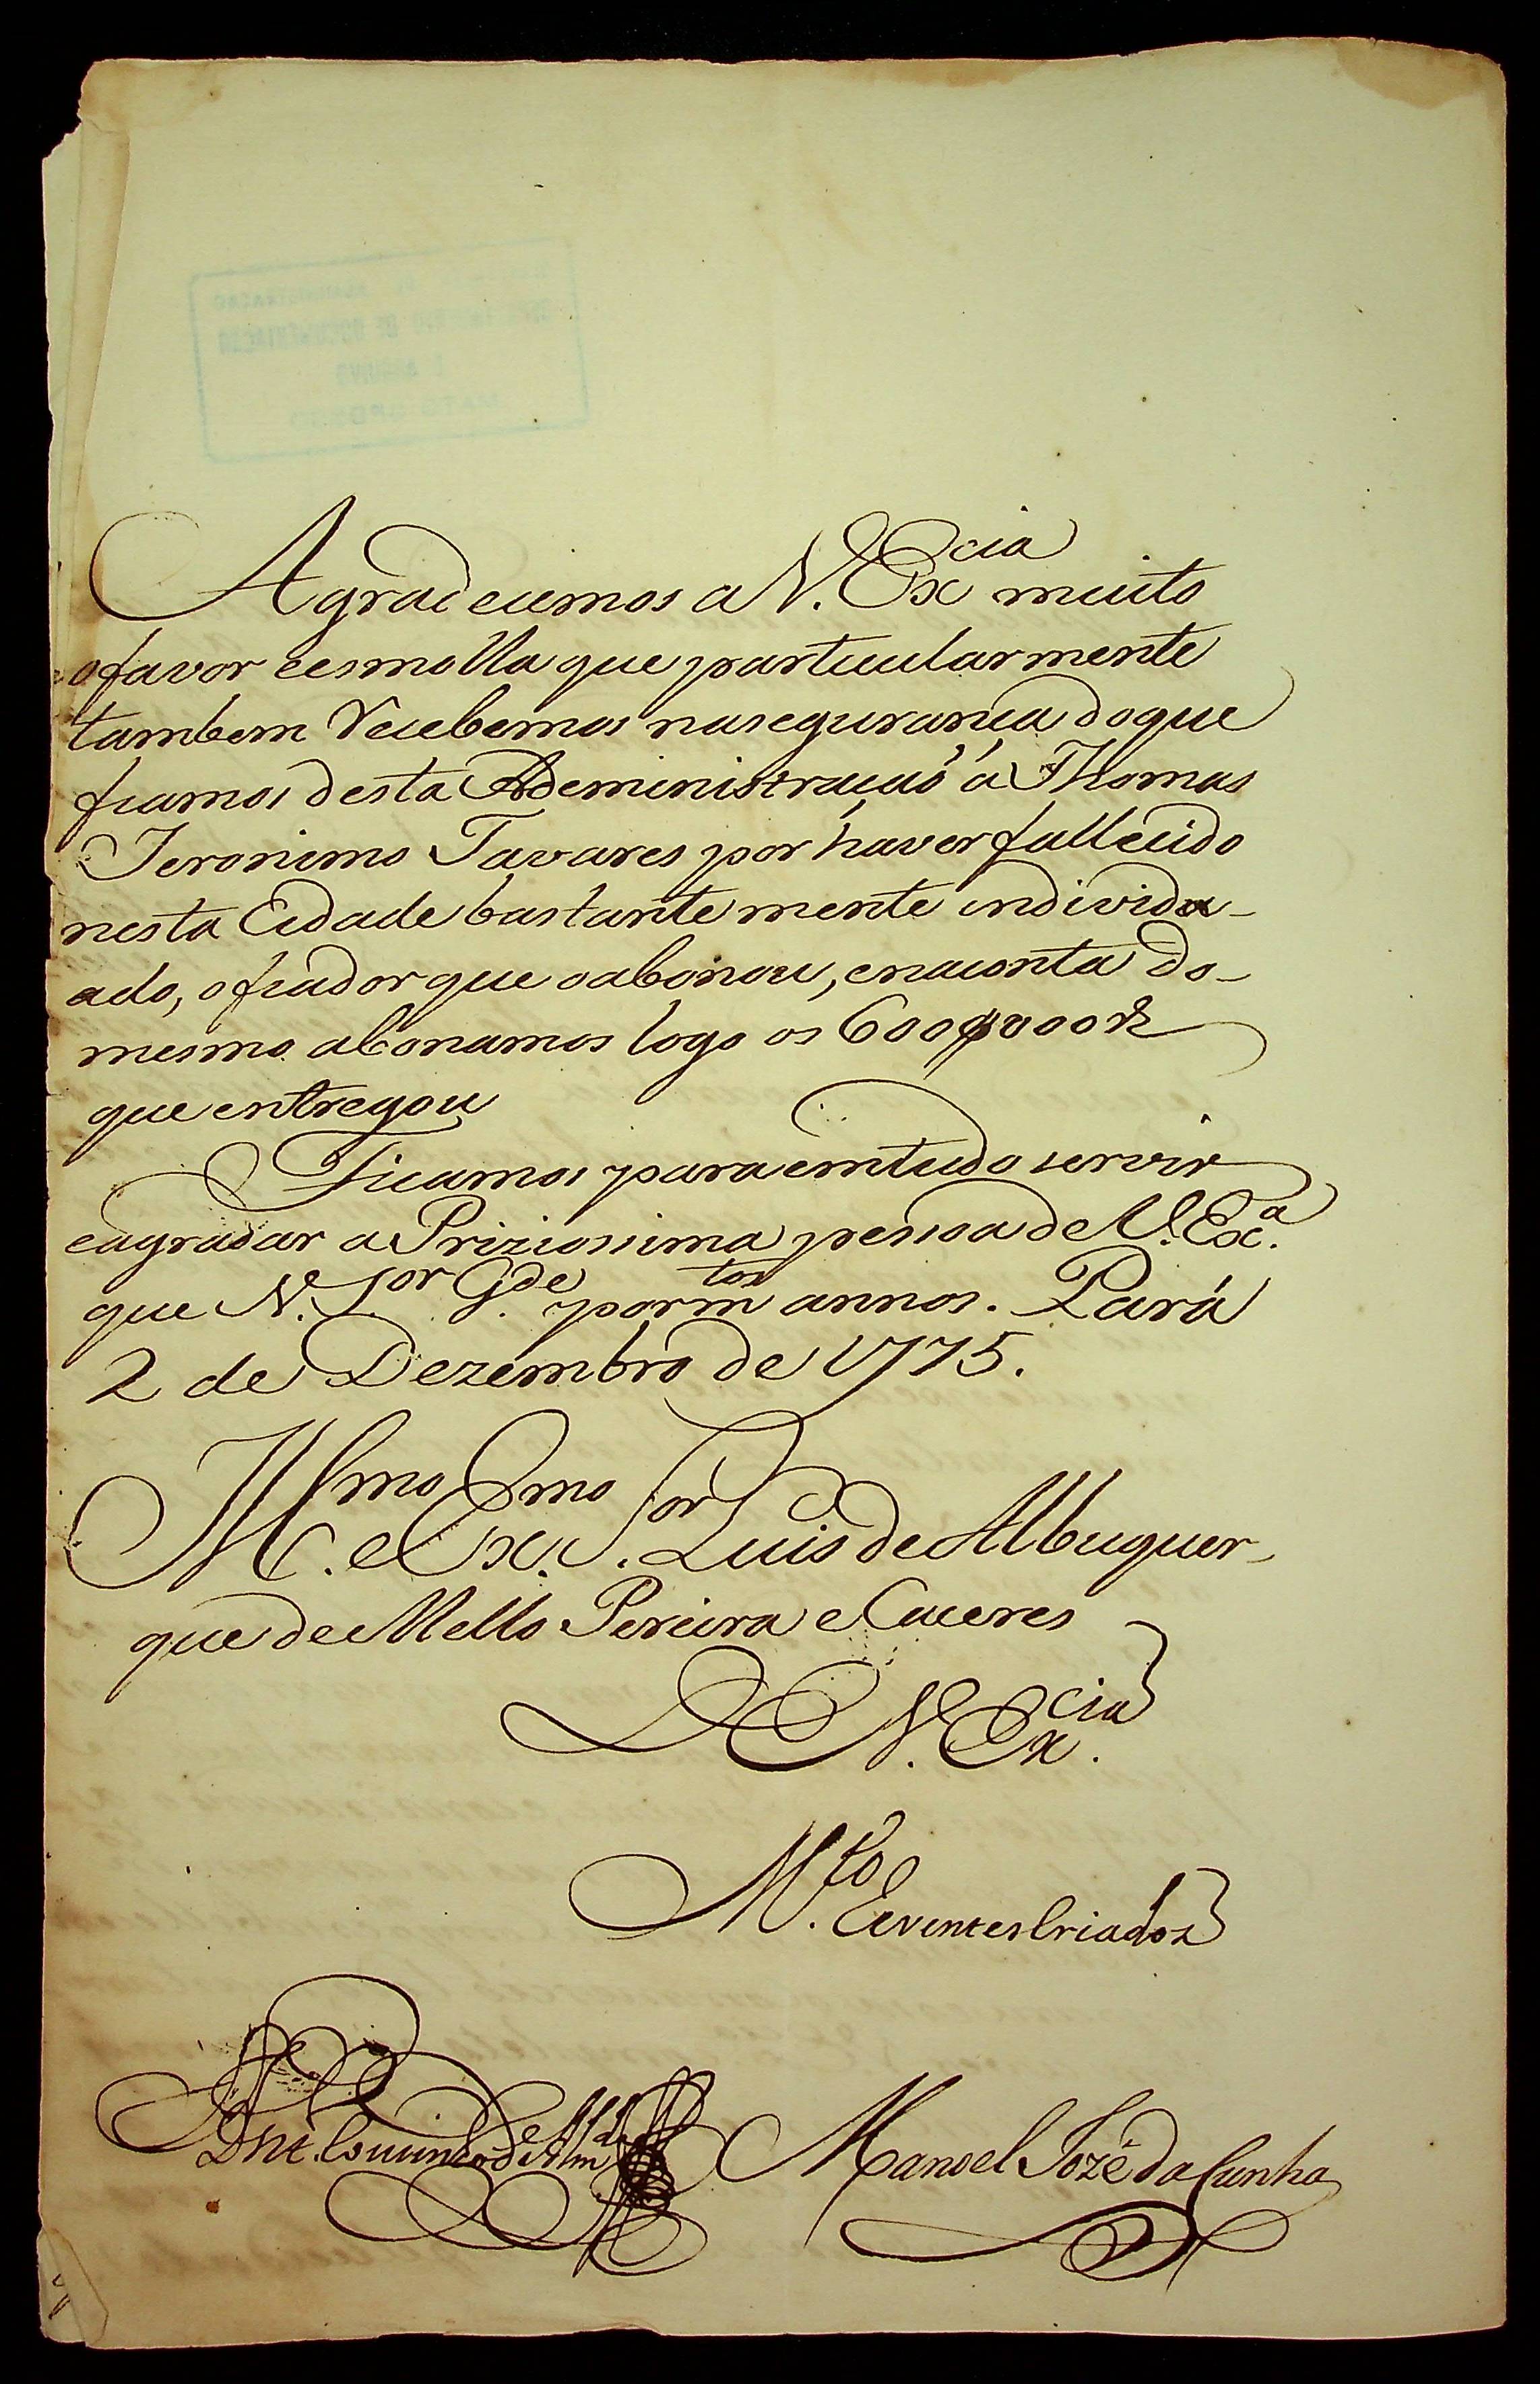 Agradecemos a V. Ex.cia muito
o favor e esmolla que particularmente
tambem Recebemos na segurança do que
fiamos desta Adeministraçaó á Thomas
Jeronimo Tavares por haver fallecido
nesta Cidade bastante mente individa-
ado, o fiador que o abonou, e na conta do-
mesmo abonamos logo os 600$000 rs
que entregou
Ficamos para em tudo servir
e agradar a Priziosima pessoa de V. Ex.a
que N. S.or G.de por m.tos annos. Pará
2 de Dezembro de 1775.
Ill.mo e Ex.mo S.or Luis de Albuquer-
que de Mello Pereira e Caceres
De V. Ex.cia
M.to Reventes Criados
de Alm.da
Manoel Jozé da Cunha